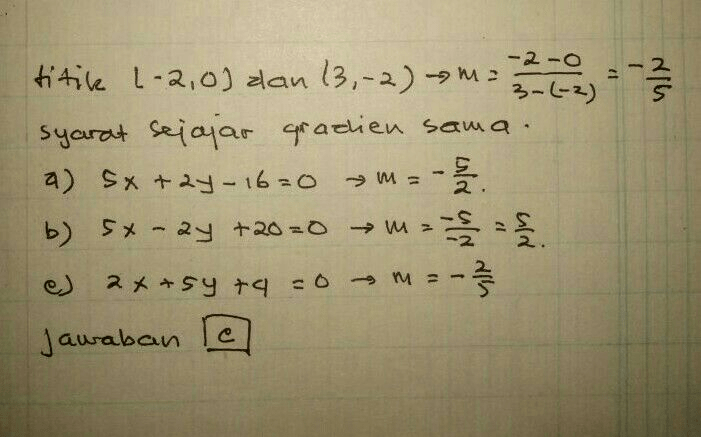 titik (-2,0) dan (3,-2) → m = -2-0/3-(-2) = -2/5
syarat sejajar gradien sama.
a) 5x + 2y - 16 = 0 → m = -5/2.
b) 5x - 2y + 20 = 0 → m = -5/-2 = 5/2.
c) 2x + 5y + 9 = 0 → m = -2/5
Jawaban c